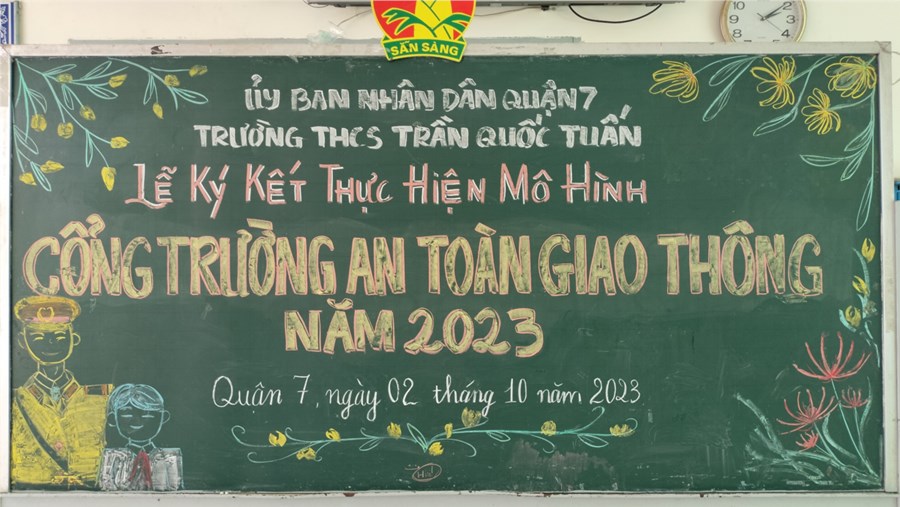 SẴN SÀNG
ỦY BAN NHÂN DÂN QUẬN 7
TRƯỜNG THCS TRẦN QUỐC TUẤN
LỄ KÝ KẾT THỰC HIỆN MÔ HÌNH
CỔNG TRƯỜNG AN TOÀN GIAO THÔNG
NĂM 2023
Quận 7, ngày 02 tháng 10 năm 2023